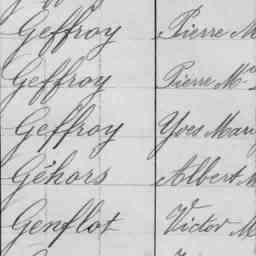 Geffroy Pierre M
Geffroy Pierre Me
Geffroy Yves Mari
Géhors Albert M
Genflot Victor M